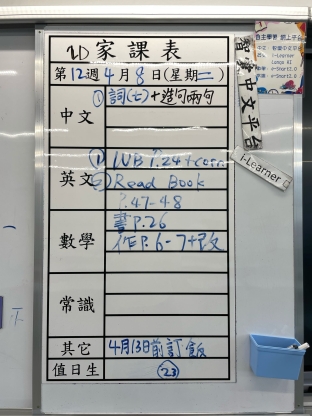 家課表
第12週4月8日(星期二)
中文
①詞(七)+造句兩句
英文
① WB P.24 + corr.
② Read Book
P.47-48
數學
書P.26
作P.6-7+改
常識
其它
4月13日前訂飯
值日生
㉓
智學中文平台
i-Learner
自主學習 網上平台
i-Learner